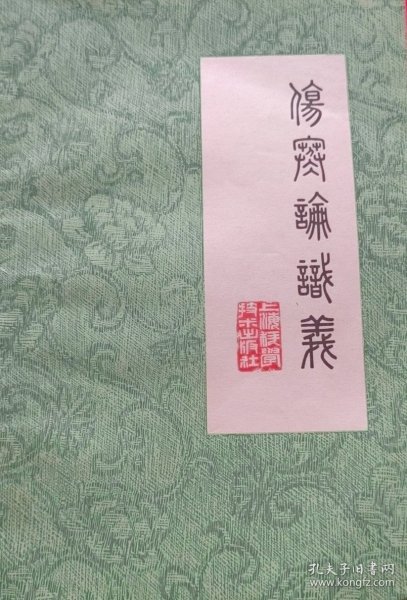 傷寒論識義
上海科學
技术出版社
孔夫子旧书网
www.kongfz.com